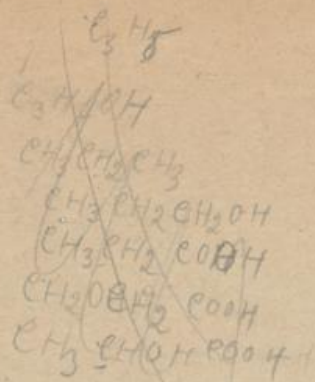 C3H8
C3H7OH
CH3CH2CH3
CH3CH2CH2OH
CH3CH2COOH
CH2OHCH2COOH
CH3CHOHCOOH